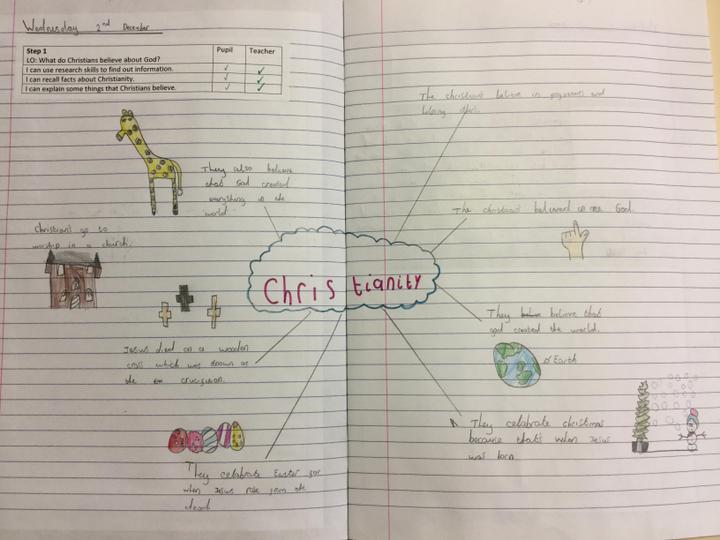 Wednesday 2nd December
Step 1
Pupil
Teacher
LO: What do Christians believe about God?
I can use research skills to find out information.
I can recall facts about Christianity.
I can explain some things that Christians believe.
They also believe
that God created
everything in the
world
Christians go to
worship in a church.
Jesus died on a wooden
cross which was known as
the crucifixion.
They celebrate Easter for
when Jesus from the
dead
Christianity
The christians believe in and
helping
The christians believed in one God.
They believe that
god created the world.
Earth
They celebrate christmas
because that's when Jesus
was born